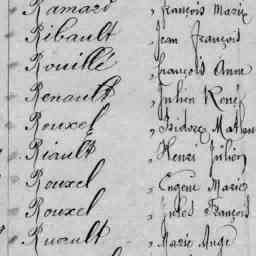 Ramard , François Marie
Ribault , Jean François
Rouillé , François Anne
Renault , Julien René
Rouxel , Isidore Mathu
Riault , Henri Julien
Rouxel , Eugène Marie
Rouxel , Jules François
Ruault , Marie Ange